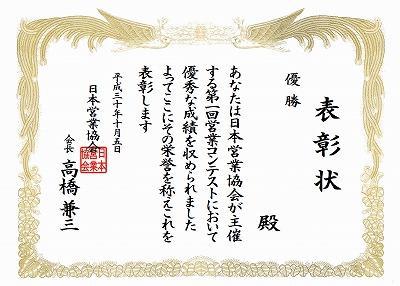 表彰状
優勝
殿
あなたは日本営業協会が主催
する第一回営業コンテストにおいて
優秀な成績を収められました
よってここにその栄誉を称えこれを
表彰します
平成三十年十月五日
日本営業協会
日本
営業
協会
会長 高橋兼三